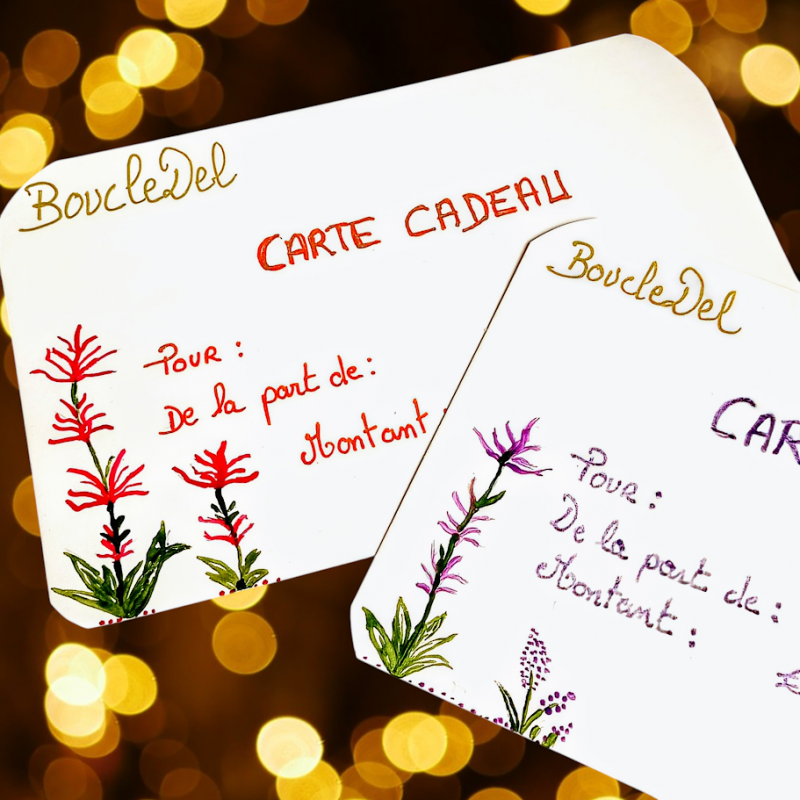 BoucleDel
CARTE CADEAU
Pour :
De la part de :
Montant :
BoucleDel
CAR
Pour :
De la part de :
Montant :